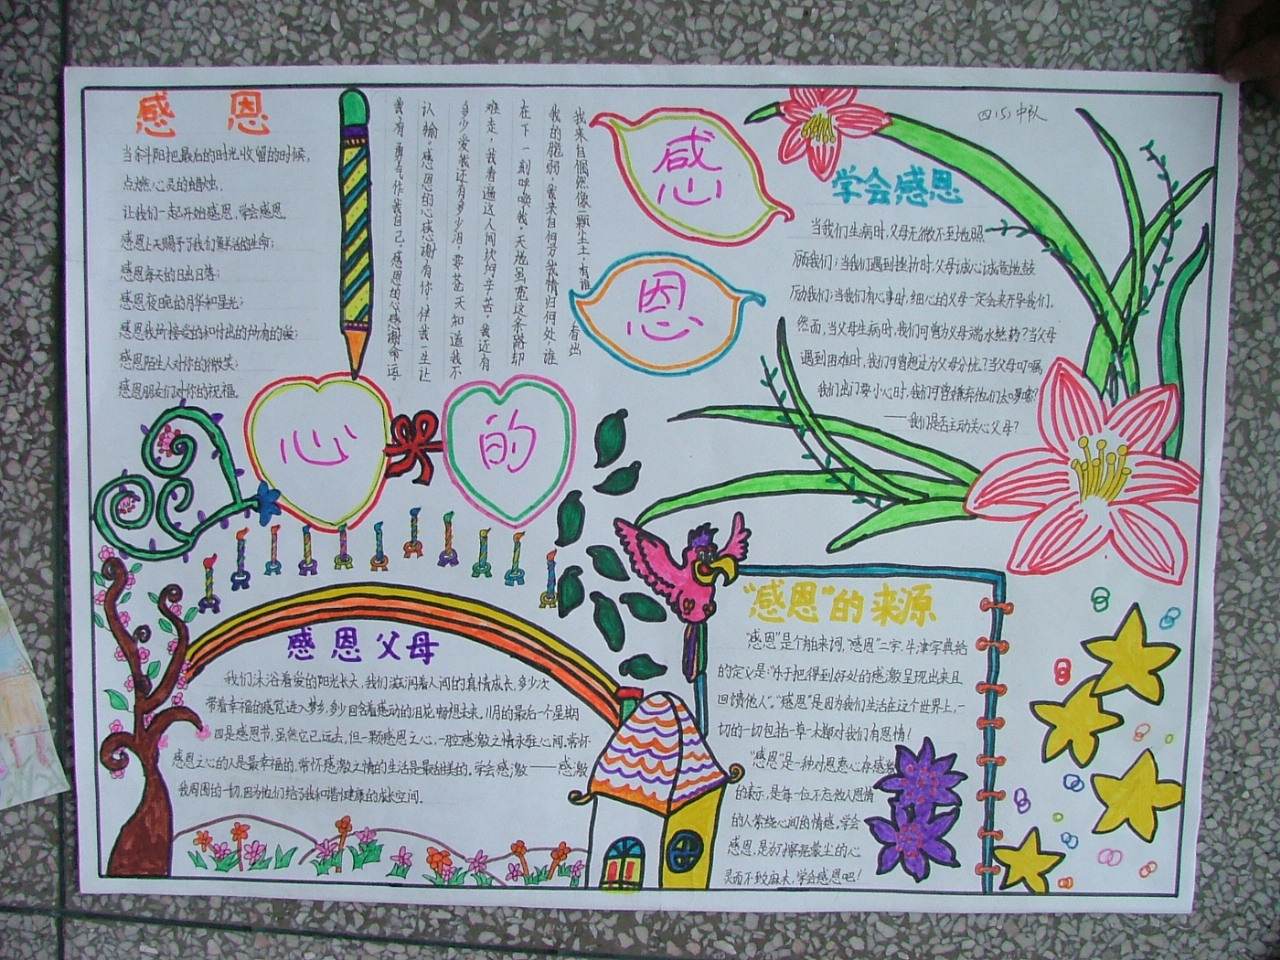 感恩
当斜阳把最后的时光收留的时候,
点燃心灵的蜡烛,
让我们一起开始感恩,学会感恩
感恩上天赐予了我们鲜活的生命;
感恩每天的日出日落;
感恩夜晚的月华和星光;
感恩我所接受的和付出的所有的爱;
感恩陌生人对你的微笑;
感恩朋友们对你的祝福。
我来自偶然像一颗尘土,有谁看出
我的脆弱,我来自何方我情归何处,谁
在下一刻呼唤我,天地虽宽这条路却
难走,我看遍这人间坎坷辛苦,我还有
多少爱我还有多少泪,要苍天知道我不
认输。感恩的心感谢有你,伴我一生让
我有勇气作我自己。感恩的心感谢命运。
感
恩
的
心
四(5)中队
学会感恩
当我们生病时,父母无微不至地照
顾我们;当我们遇到挫折时,父母诚心诚意地鼓
励我们;当我们有心事时,细心的父母一定会来开导我们。
然而,当父母生病时,我们可曾为父母端水煎药?当父母
遇到困难时,我们可曾想过为父母分忧?当父母叮嘱
我们出门要小心时,我们可曾嫌弃他们太啰嗦?
——我们是否主动关心父母?
感恩父母
我们沐浴着爱的阳光长大,我们滋润着人间的真情成长,多少次
带着幸福的感觉进入梦乡,多少回含着感动的泪花畅想未来,11月的最后一个星期
四是感恩节,虽然它已远去,但一颗感恩之心,一腔感激之情永在心间,常怀
感恩之心的人是最幸福的,常怀感激之情的生活是最甜美的。学会感激——感激
我周围的一切,因为他们给了我和谐健康的成长空间。
“感恩”的来源
“感恩”是个舶来词,“感恩”二字,牛津字典给
的定义是:“乐于把得到好处的感激呈现出来且
回馈他人”。“感恩”是因为我们生活在这个世界上,一
切的一切包括一草一木都对我们有恩情!
“感恩”是一种对恩惠心存感激
的表示,是每一位不忘他人恩情
的人萦绕心间的情感。学会
感恩,是为了擦亮蒙尘的心
灵而不致麻木,学会感恩吧!